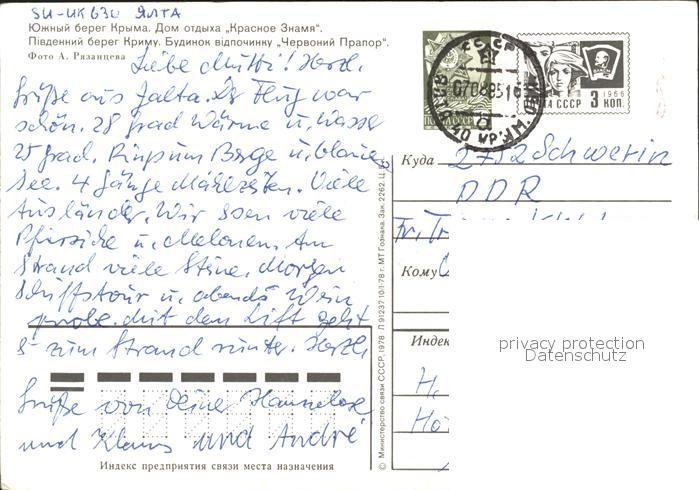 SU-UK630 ЯЛТА
Южный берег Крыма. Дом отдыха „Красное Знамя“.
Південний берег Криму. Будинок відпочинку „Червоний Прапор“.
Фото А. Рязанцева
Liebe Mutti! Herzl.
Grüße aus Jalta. Der Flug war
schön. 28 Grad Wärme u. Wasser
25 Grad. Ringsum Berge u. blaue
See. 4 Gänge Mahlzeiten. Viele
Ausländer. Wir essen viele
Pfirsiche u. Melonen. Am
Strand viele Steine. Morgen
Schiffstour u. abends Wein
probe. Mit dem Lift geht
s zum Strand runter. Herzl.
Grüße von Deiner Hannelore
und Klaus und André
Индекс предприятия связи места назначения
© Министерство связи СССР, 1978 Л 9123710/1-78 г. МТ Гознака. Зак. 2262. Ц.
СССР
07088516
КРЫМ
ПОЧТА СССР
1966
3 КОП.
Куда 2752 Schwerin
DDR
Fr.
Кому
Индек
H.
Ho
privacy protection
Datenschutz